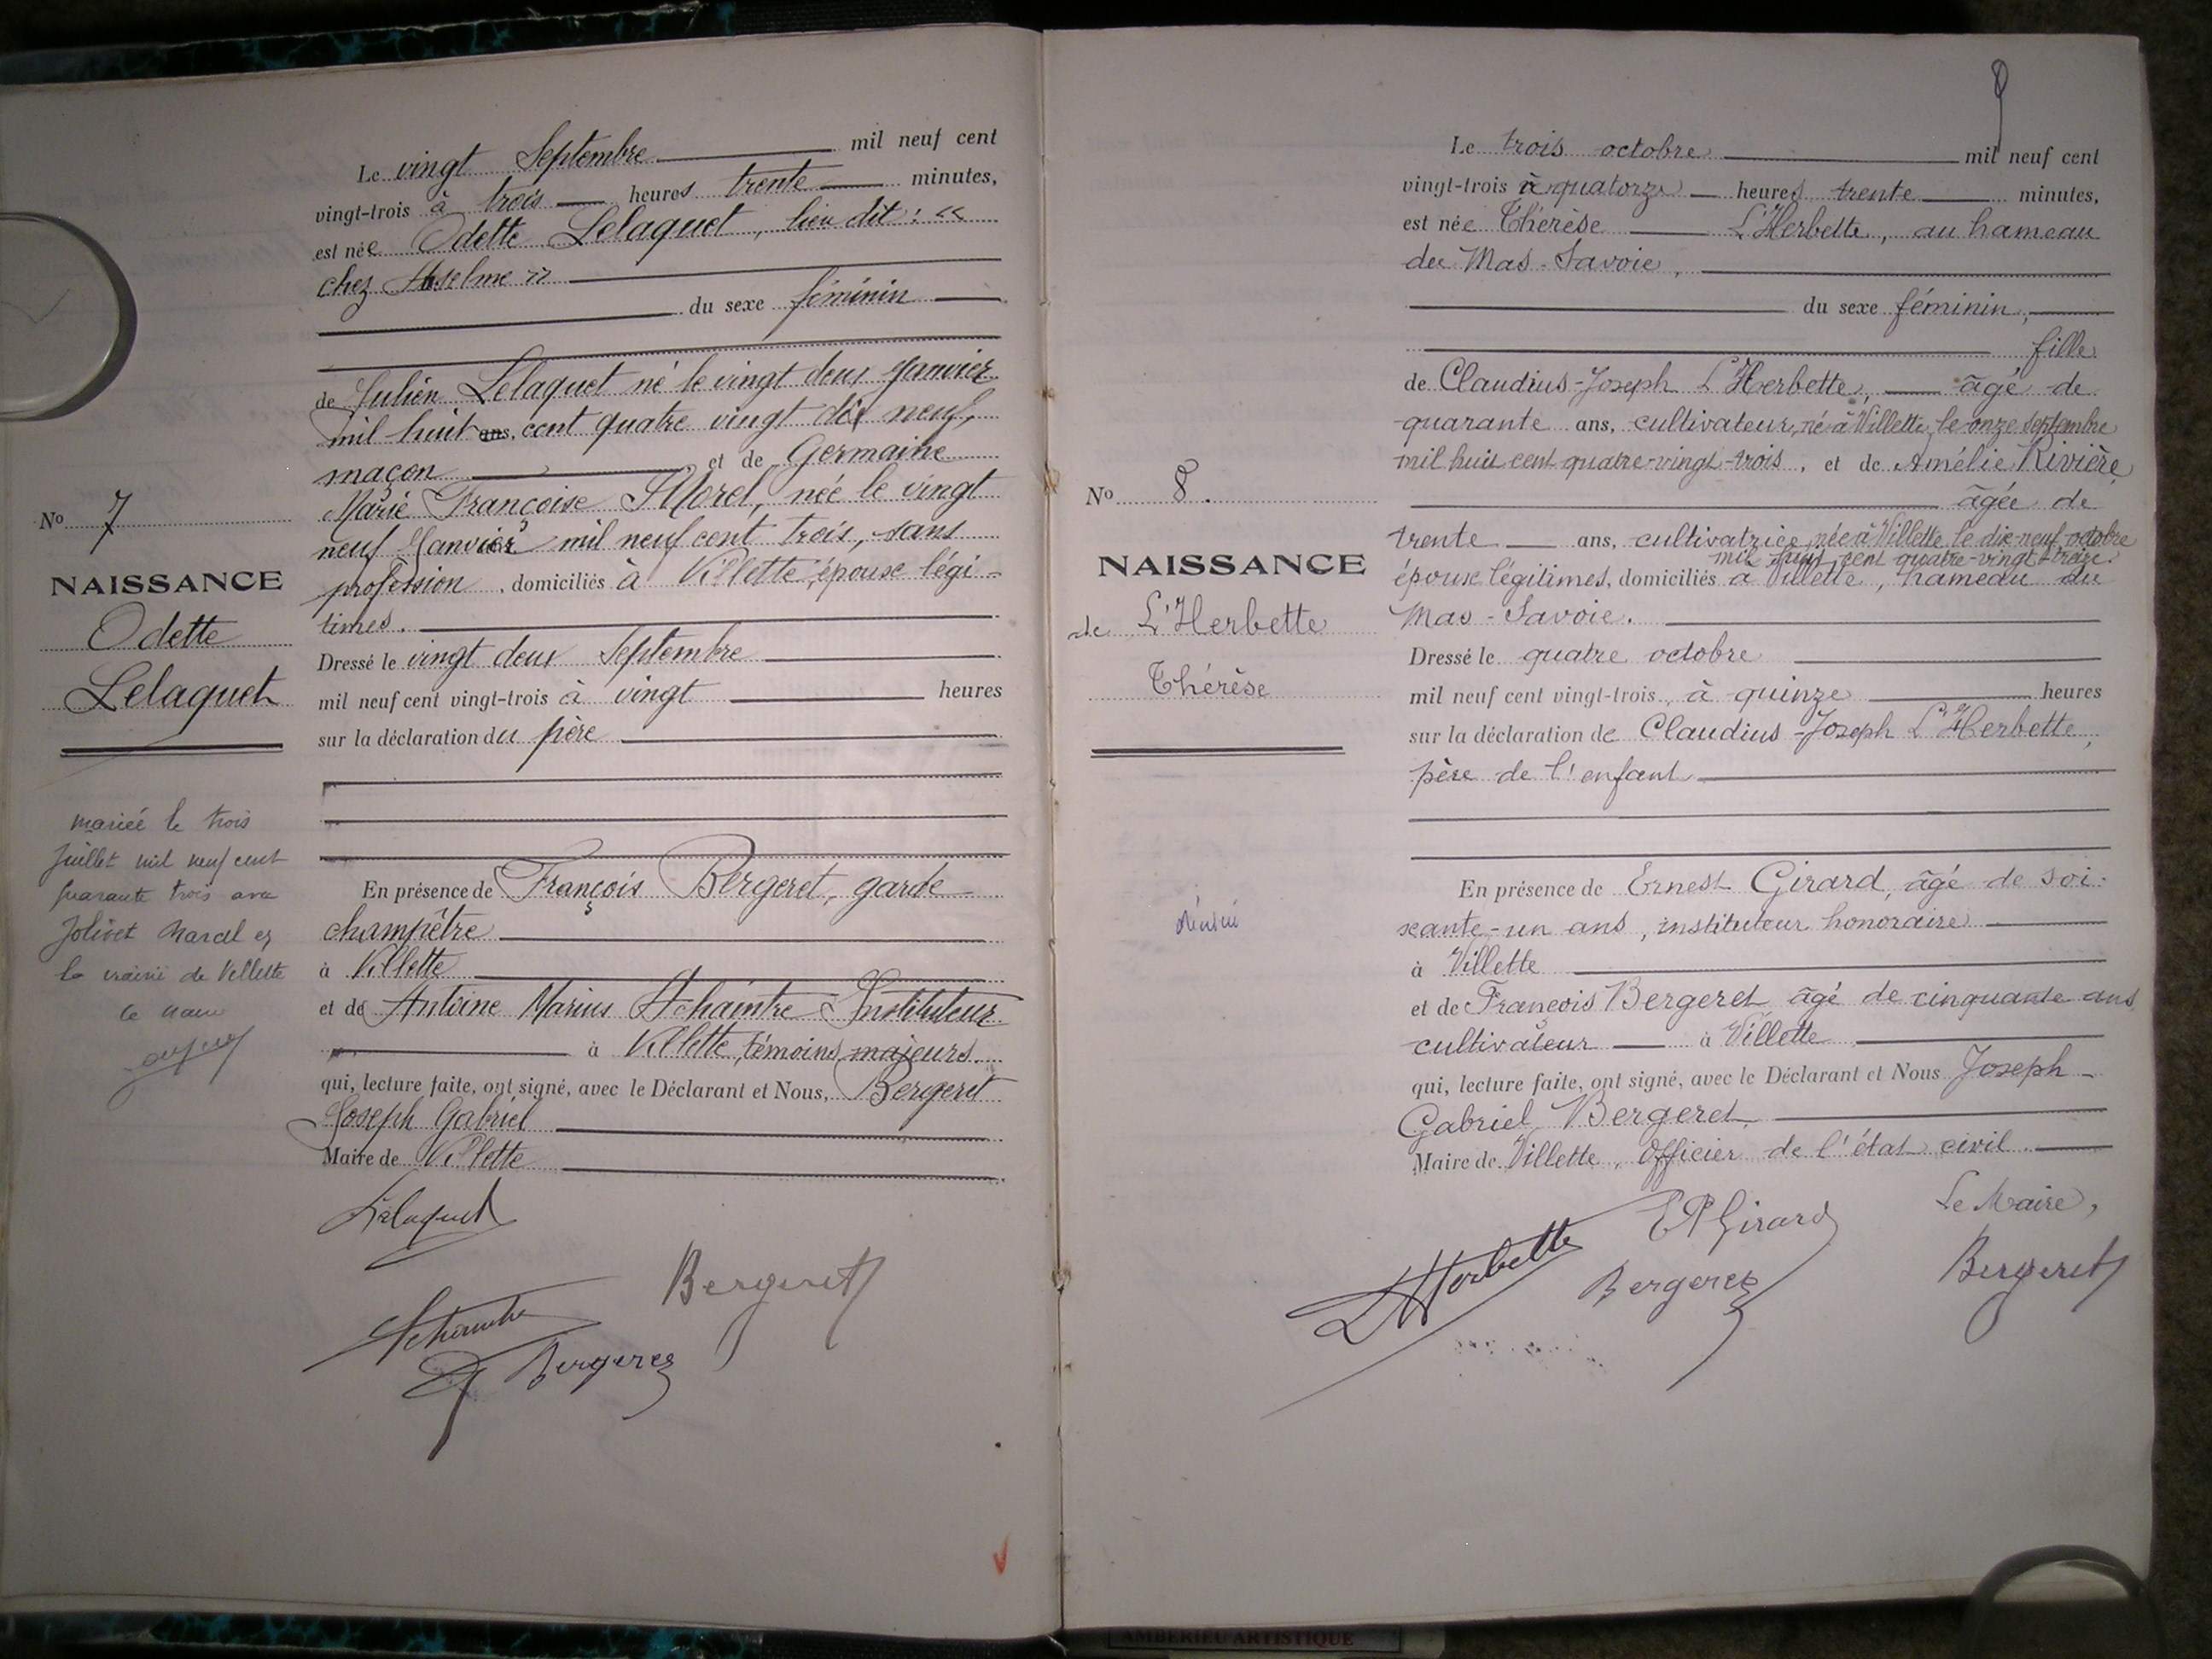 Le vingt Septembre mil neuf cent
vingt-trois à trois heures trente minutes,
est née Odette Lelaquet, lieu dit : «
chez Anselme »
du sexe féminin
de Julien Lelaquet né le vingt deux Janvier
mil huit ans, cent quatre vingt dix neuf,
maçon et de Germaine
Marie Françoise Morel, née le vingt
neuf Janvier mil neuf cent trois, sans
profession, domiciliés à Villette, épouse légi-
times.
Dressé le vingt deux Septembre
mil neuf cent vingt-trois à vingt heures
sur la déclaration du père
En présence de François Bergeret, garde
champêtre
à Villette
et de Antoine Marius Achaintre Instituteur
à Villette, témoins majeurs.
qui, lecture faite, ont signé, avec le Déclarant et Nous, Bergeret
Joseph Gabriel
Maire de Villette
Lelaquet
Bergeret
Achaintre
Bergeret
No 7
NAISSANCE
Odette
Lelaquet
mariée le trois
Juillet mil neuf cent
quarante trois avec
Jolivet Marcel
la mairie de Villette
Le maire
Le trois octobre mil neuf cent
vingt-trois à quatorze heures trente minutes,
est née Thérèse L'Herbette, au hameau
du Mas-Savoie,
du sexe féminin,
fille
de Claudius-Joseph L'Herbette, âgé de
quarante ans, cultivateur, né à Villette, le onze septembre
mil huit cent quatre-vingt-trois, et de Amélie Rivière
âgée de
trente ans, cultivatrice, née à Villette le dix-neuf octobre
mil huit cent quatre-vingt-treize.
épouse légitimes, domiciliés à Villette, hameau du
Mas-Savoie.
Dressé le quatre octobre
mil neuf cent vingt-trois, à quinze heures
sur la déclaration de Claudius-Joseph L'Herbette,
père de l'enfant
En présence de Ernest Girard, âgé de soi-
xante-un ans, instituteur honoraire
à Villette
et de François Bergeret âgé de cinquante ans
cultivateur à Villette
qui, lecture faite, ont signé, avec le Déclarant et Nous Joseph-
Gabriel Bergeret,
Maire de Villette, Officier de l'état civil.
Le Maire,
L'Herbette
Girard
Bergeret
Bergeret
No 8.
NAISSANCE
de L'Herbette
Thérèse
AMBERIEU ARTISTIQUE